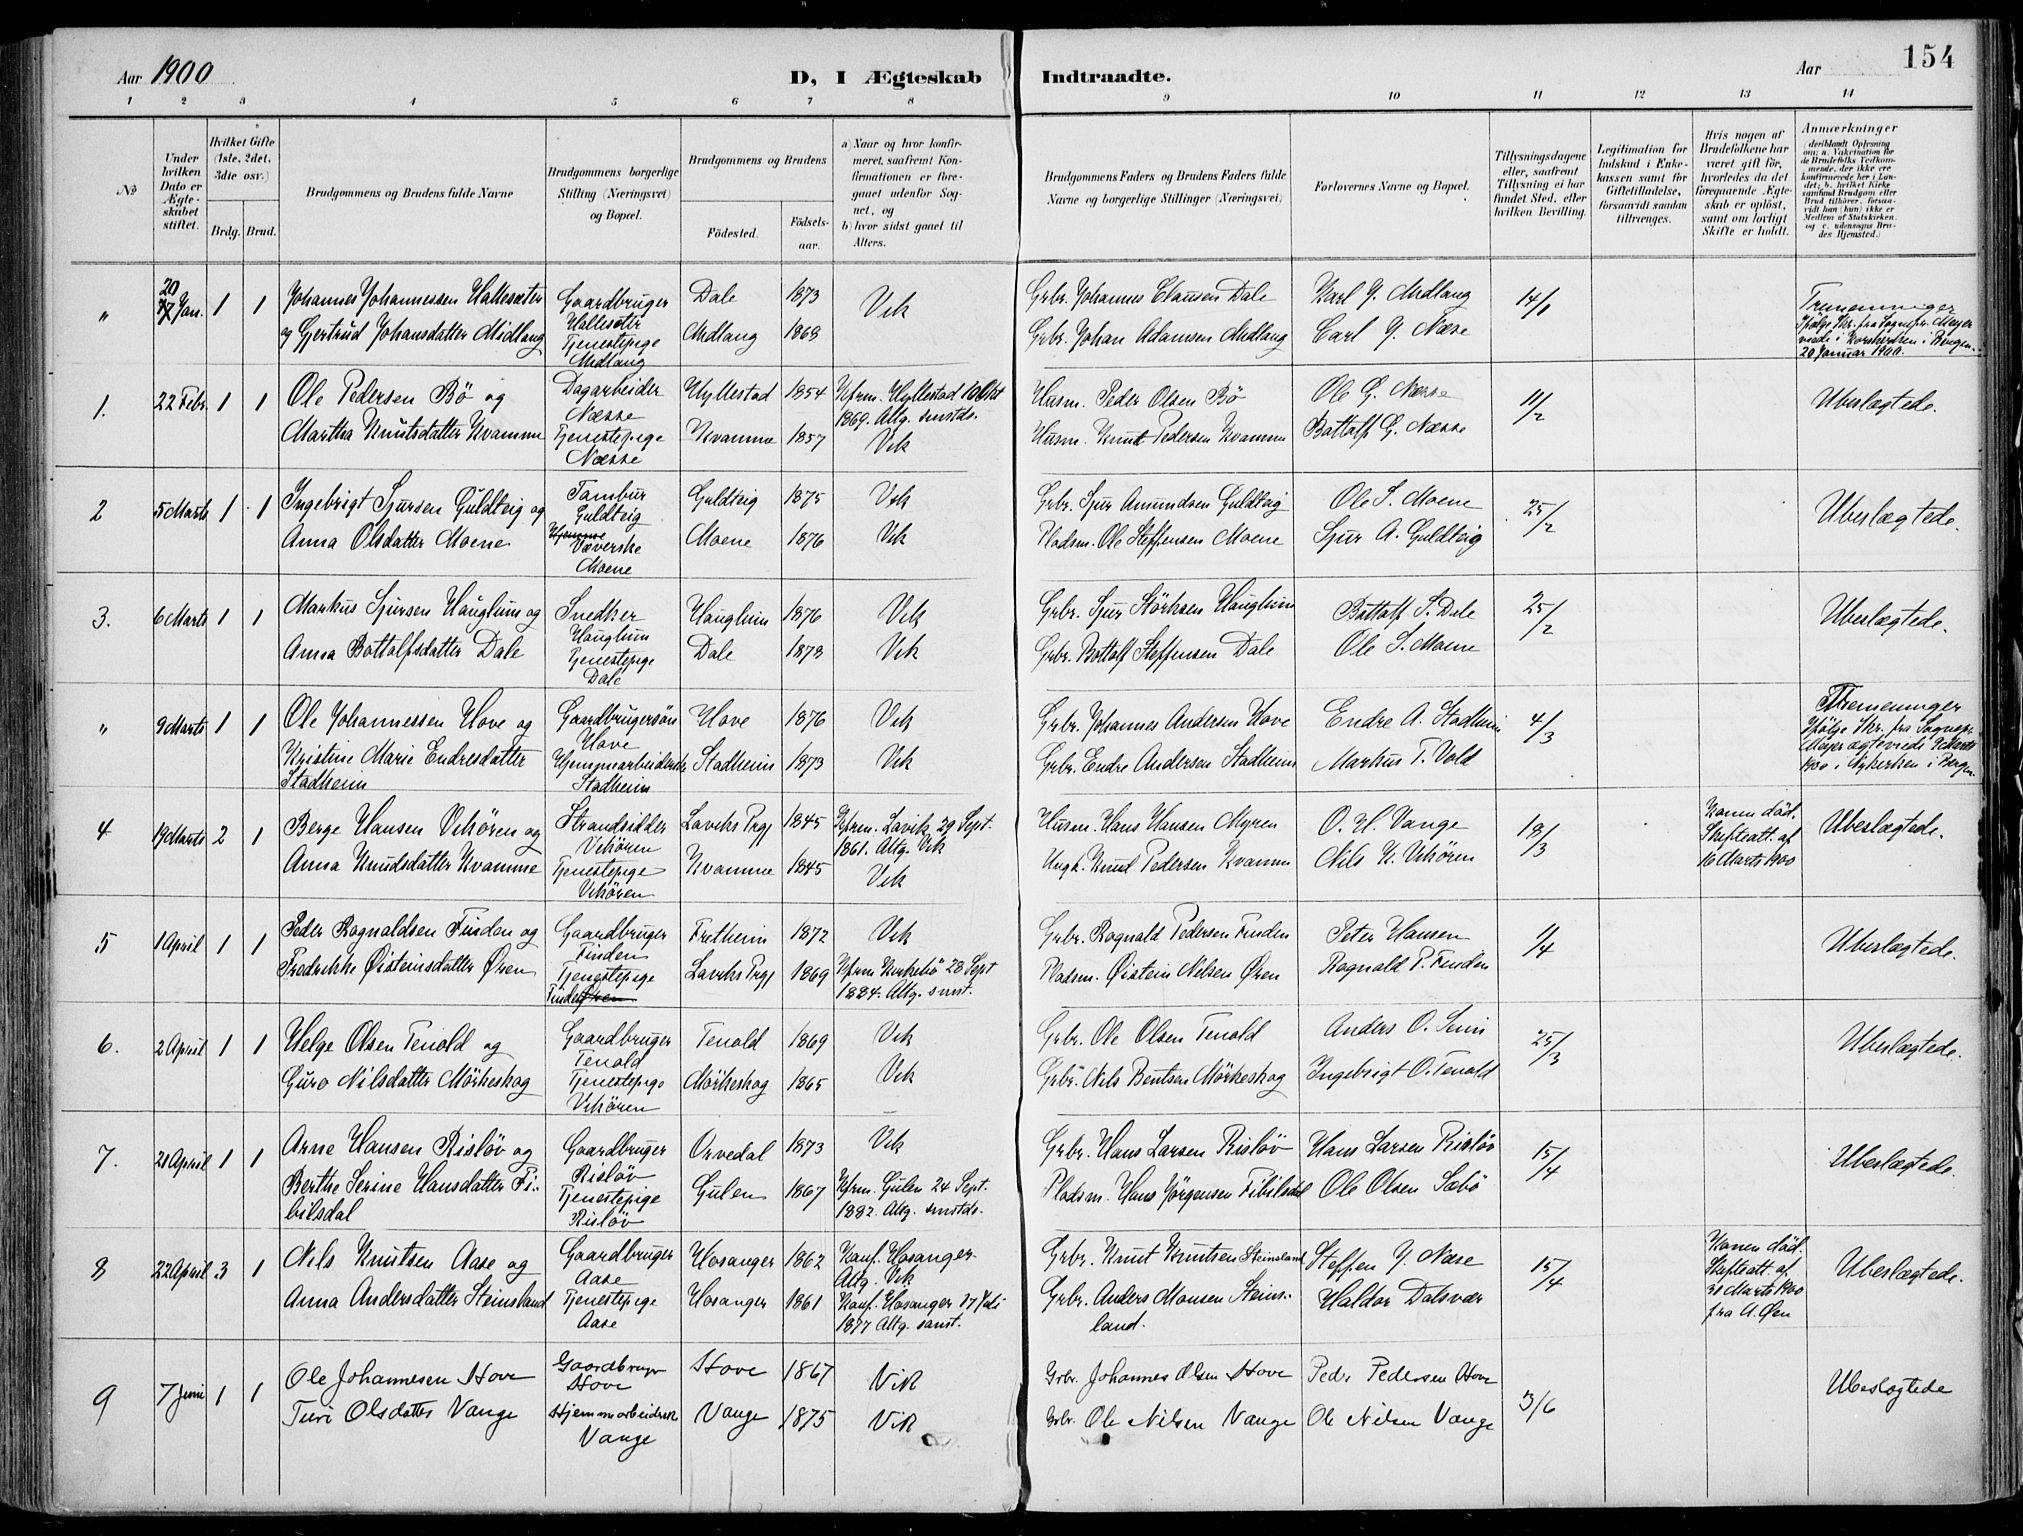 Aar 1900
D, I Ægteskab
Indtraadte.
Aar
154
1 2 3 4 5 6 7 8 9 10 11 12 13 14
No
Under hvilken Dato er Ægteskabet stiftet.
Hvilket Gifte (1ste, 2det, 3die osv.)
Brdg. Brud.
Brudgommens og Brudens fulde Navne
Brudgommens borgerlige Stilling (Næringsvei) og Bopæl.
Brudgommens og Brudens
Födested.
Födselsaar.
a) Naar og hvor konfirmeret, saafremt Konfirmationen er foregaaet udenfor Sognet, og
b) hvor sidst gaaet til Alters.
Brudgommens Faders og Brudens Faders fulde Navne og borgerlige Stillinger (Næringsvei)
Forlovernes Navne og Bopæl.
Tillysningsdagene eller, saafremt Tillysning ei har fundet Sted, efter hvilken Bevilling.
Legitimation for Indskud i Enkekassen samt for Giftetilladelse, forsaavidt saadan tiltrænges.
Hvis nogen af Brudefolkene har været gift för, hvorledes da det foregaaende Ægteskab er oplöst, samt om lovligt Skifte er holdt.
Anmærkninger
(deriblandt Oplysning om: a. Vakcination for de Brudefolks Vedkommende, der ikke ere konfirmerede her i Landet; b. hvilket Kirkesamfund Brudgom eller Brud tilhörer, forsaavidt han (hun) ikke er Medlem af Statskirken, og c. udensogns Brudes Hjemsted.)
" 20 Jan. 1 1 Johannes Johannessen Hallesæter Gaardbruger Dale 1873 Vik Grbr. Johannes Clausen Dale Karl J. Midlang 14/1 Tremenninger
Hallesæter
og Gjertrud Johansdatter Midlang Tjenestepige Midlang 1868 Grbr. Johan Adamsen Midlang Carl J. Næse Ifølge Skr. fra Sognepr. Meyer
Midlang
viede i Korskirken i Bergen
20 Januar 1900.
1. 22 Febr. 1 1 Ole Pedersen Bö og Dagarbeider Hyllestad 1854 Kfrm. Hyllestad 10 Okt Husm. Peder Olsen Bö Ole G. Næsse 11/2 Ubeslægtede.
Næsse 1869. Altg. smstds.
Martha Knutsdatter Kvamme Tjenestepige Kvamme 1857 Vik Husm. Knut Pedersen Kvamme Battolf G. Næsse
Næsse
2 5 Marts 1 1 Ingebrigt Sjursen Guldteig og Tambur Guldteig 1875 Vik Grbr. Sjur Amundsen Guldteig Ole S. Moene 25/2 Ubeslægtede.
Guldteig
Anna Olsdatter Moene Væverske Moene 1876 Vik Pladsm. Ole Steffensen Moene Sjur A. Guldteig
Moene
3. 6 Marts 1 1 Markus Sjursen Hauglum og Snedker Hauglum 1876 Vik Grbr. Sjur Störksen Hauglum Bottolf S. Dale 25/2 Ubeslægtede.
Hauglum
Anna Bottolfsdatter Dale Tjenestepige Dale 1873 Vik Grbr. Bottolf Steffensen Dale Ole S. Moene
Dale
" 9 Marts 1 1 Ole Johannessen Hove og Gaardbrugersön Hove 1876 Vik Grbr. Johannes Andersen Hove Endre A. Stadheim 4/3 Tremenninger
Hove
Kristine Marie Endresdatter Hjemmearbeiderske Stadheim 1873 Vik Grbr. Endre Andersen Stadheim Markus T. Vold Ifölge Skr. fra Sognepr.
Stadheim Stadheim
Meyer ægteviede Marts
1900 i Nykirken i Bergen
4 19 Marts 2 1 Berge Hansen Vikören og Strandsidder Laviks Prgj 1845 Kfrm. Lavik 29 Sept. Husm. Hans Hansen Myren O. H. Vange 18/3 Konen död. Ubeslægtede.
Vikören 1861. Altg. Vik Skifteatt. af
Anna Knudsdatter Kvamme Tjenestepige Kvamme 1845 Vik Ungk. Knud Pedersen Kvamme Nils K. Vikören 16 Marts 1900
Vikören
5 1 April 1 1 Peder Rognaldsen Finden og Gaardbruger Fretheim 1872 Vik Grbr. Rognald Pedersen Finden Peter Hansen 1/4 Ubeslægtede.
Finden
Fredrikke Øisteinsdatter Øren Tjenestepige Laviks Prgj 1869 Kfrm Kirkebö 28 Sept Pladsm. Øistein Nelsen Øren Rognald P. Finden
Finden Øren 1884. Altg. smst.
6. 2 April 1 1 Helge Olsen Tenold og Gaardbruger Tenold 1869 Vik Grbr. Ole Olsen Tenold Anders O. Seim 25/3 Ubeslægtede.
Tenold
Guro Nilsdatter Mörkeskog Tjenestepige Mörkeskog 1865 Vik Grbr. Nils Bentsen Mörkeskog Ingebrigt O. Tenold
Vikören
7. 21 April 1 1 Arne Hansen Rislöv og Gaardbruger Orvedal 1873 Vik Grbr. Hans Larsen Rislöv Hans Larsen Rislöv 15/4 Ubeslægtede.
Rislöv
Berthe Serine Hansdatter Fi- Tjenestepige Gulen 1867 Kfrm. Gulen 24 Sept. Pladsm. Hans Jörgensen Fibilsdal Ole Olsen Sæbö
bilsdal Rislöv 1882. Altg. smstds.
8 22 April 3 1 Nils Knutsen Aase og Gaardbruger Hosanger 1862 Konf. Hosanger. Grbr. Knut Knutsen Steinsland Steffen J. Næse 15/4 Konen död. Ubeslægtede.
Aase Altg. Vik Skifteatt. af
Anna Andersdatter Steinsland Tjenestepige Hosanger 1861 Konf. Hosanger Juli Grbr. Anders Monsen Steins- Haldor Dalsvær Marts 1900
Aase 1877 Altg. samst. land. fra A. Øen
9 7 Juni 1 1 Ole Johannesen Hove Gaardbruger Hove 1867 Vik Grbr. Johannes Olsen Hove Peder Pedersen Hove 3/6 Ubeslægtede
Hove
Turi Olsdatter Vange Hjemmearbeidersk Vange 1875 Vik Grbr. Ole Nilsen Vange Ole Nilsen Vange
Vange